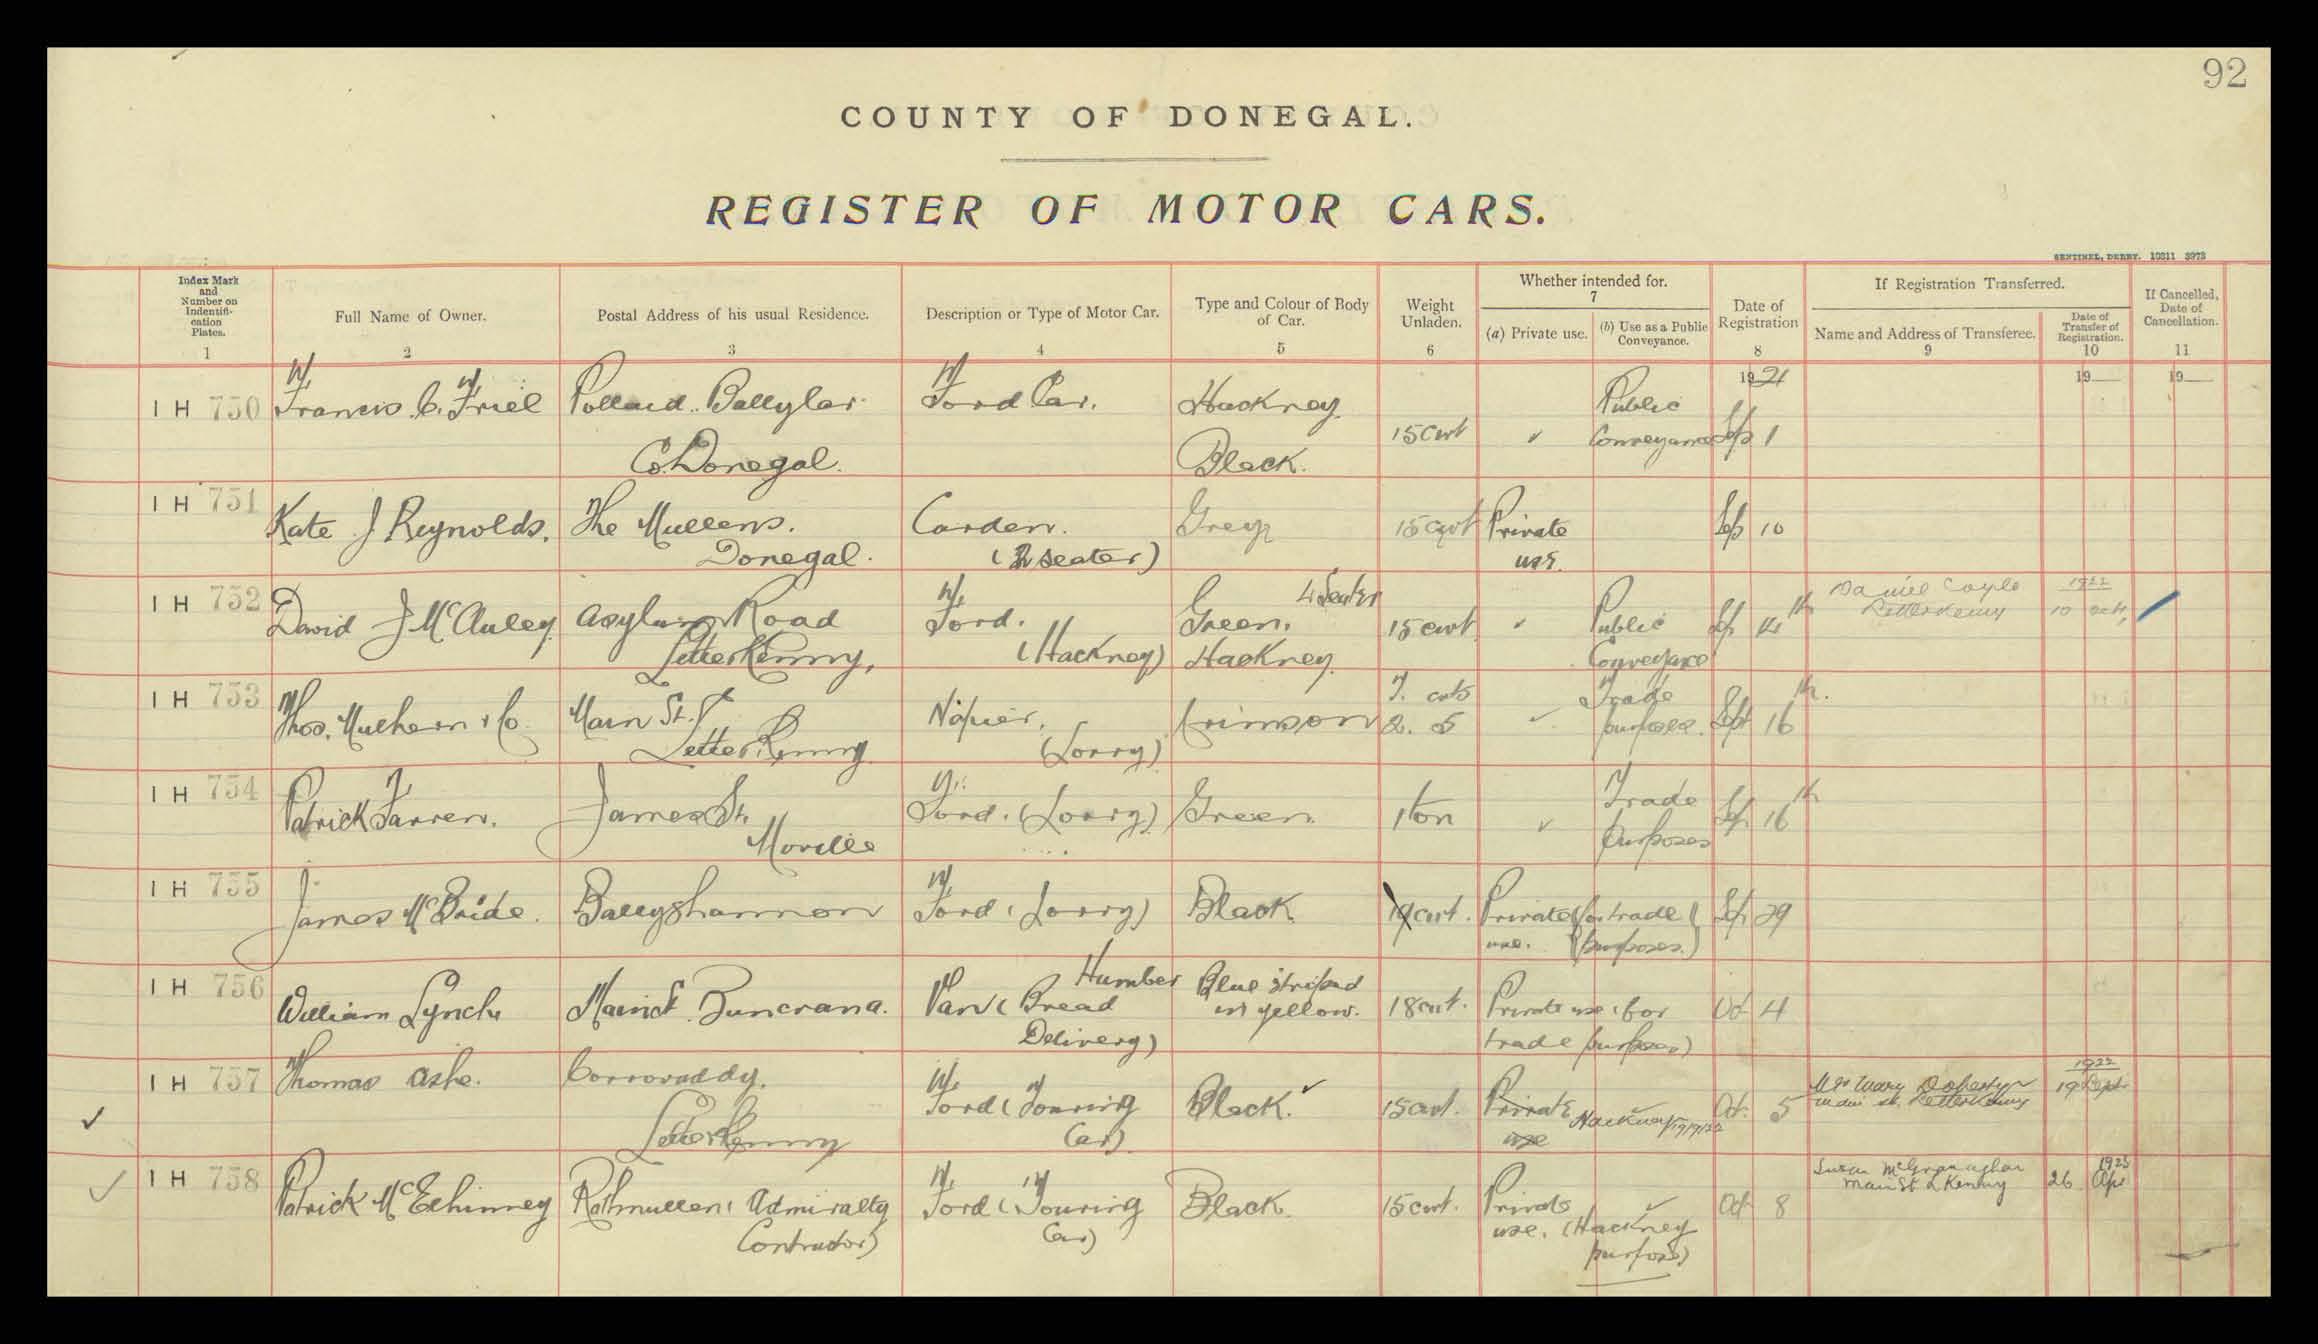 92
COUNTY OF DONEGAL.
REGISTER OF MOTOR CARS.
SENTINEL, DERRY. 10311 3973
Index Mark and Number on Indentifi-cation Plates. 1
Full Name of Owner. 2
Postal Address of his usual Residence. 3
Description or Type of Motor Car. 4
Type and Colour of Body of Car. 5
Weight Unladen. 6
Whether intended for. 7
(a) Private use.
(b) Use as a Public Conveyance.
Date of Registration 8
If Registration Transferred.
Name and Address of Transferee. 9
Date of Transfer of Registration. 10
If Cancelled, Date of Cancellation. 11
1921 19 19
I H 750 Francis C. Friel Ballylar Ford Car. Hackney 15 cwt Public Conveyance Sep 1
Co. Donegal. Black.
I H 751 Kate J Reynolds. The Mullens. Carden. Grey 15 cwt Private Sep 10
Donegal. (2 seater) use.
I H 752 David J McAuley Asylum Road Ford. 4 Seater Green. 15 cwt Public Sep 14th Daniel Coyle 1922
Letterkenny, (Hackney) Hackney. Conveyance Letterkenny 10 Oct,
I H 753 Thos. Mulhern & Co. Main St. Napier. Crimson T. cwts 2. 5 Trade Sept 16th.
Letterkenny (Lorry) purposes.
I H 754 Patrick Farren. James St. Ford. (Lorry) Green 1 ton Trade Sep 16th
Moville purposes
I H 755 James McBride. Ballyshannon Ford (Lorry) Black cwt. Private (for trade Sep 29
use. purposes.)
I H 756 William Lynch Main St. Buncrana. Humber Van (Bread Blue striped 18 cwt. Private use (for Oct 4
Delivery) in yellow. trade purposes)
I H 757 Thomas Ashe. Ford (Touring Black. 15 cwt. Private Hackney Oct. 5 Mrs Mary Doherty 1922
Letterkenny Car) use Main St. Letterkenny 19 Sept
I H 758 Patrick McElhinney Rathmullen (Admiralty Ford (Touring Black. 15 cwt. Private Oct 8 Susan McGranaghan 1923
Contractor) Car) use. (Hackney Main St LKenny 26 Apr
purposes)